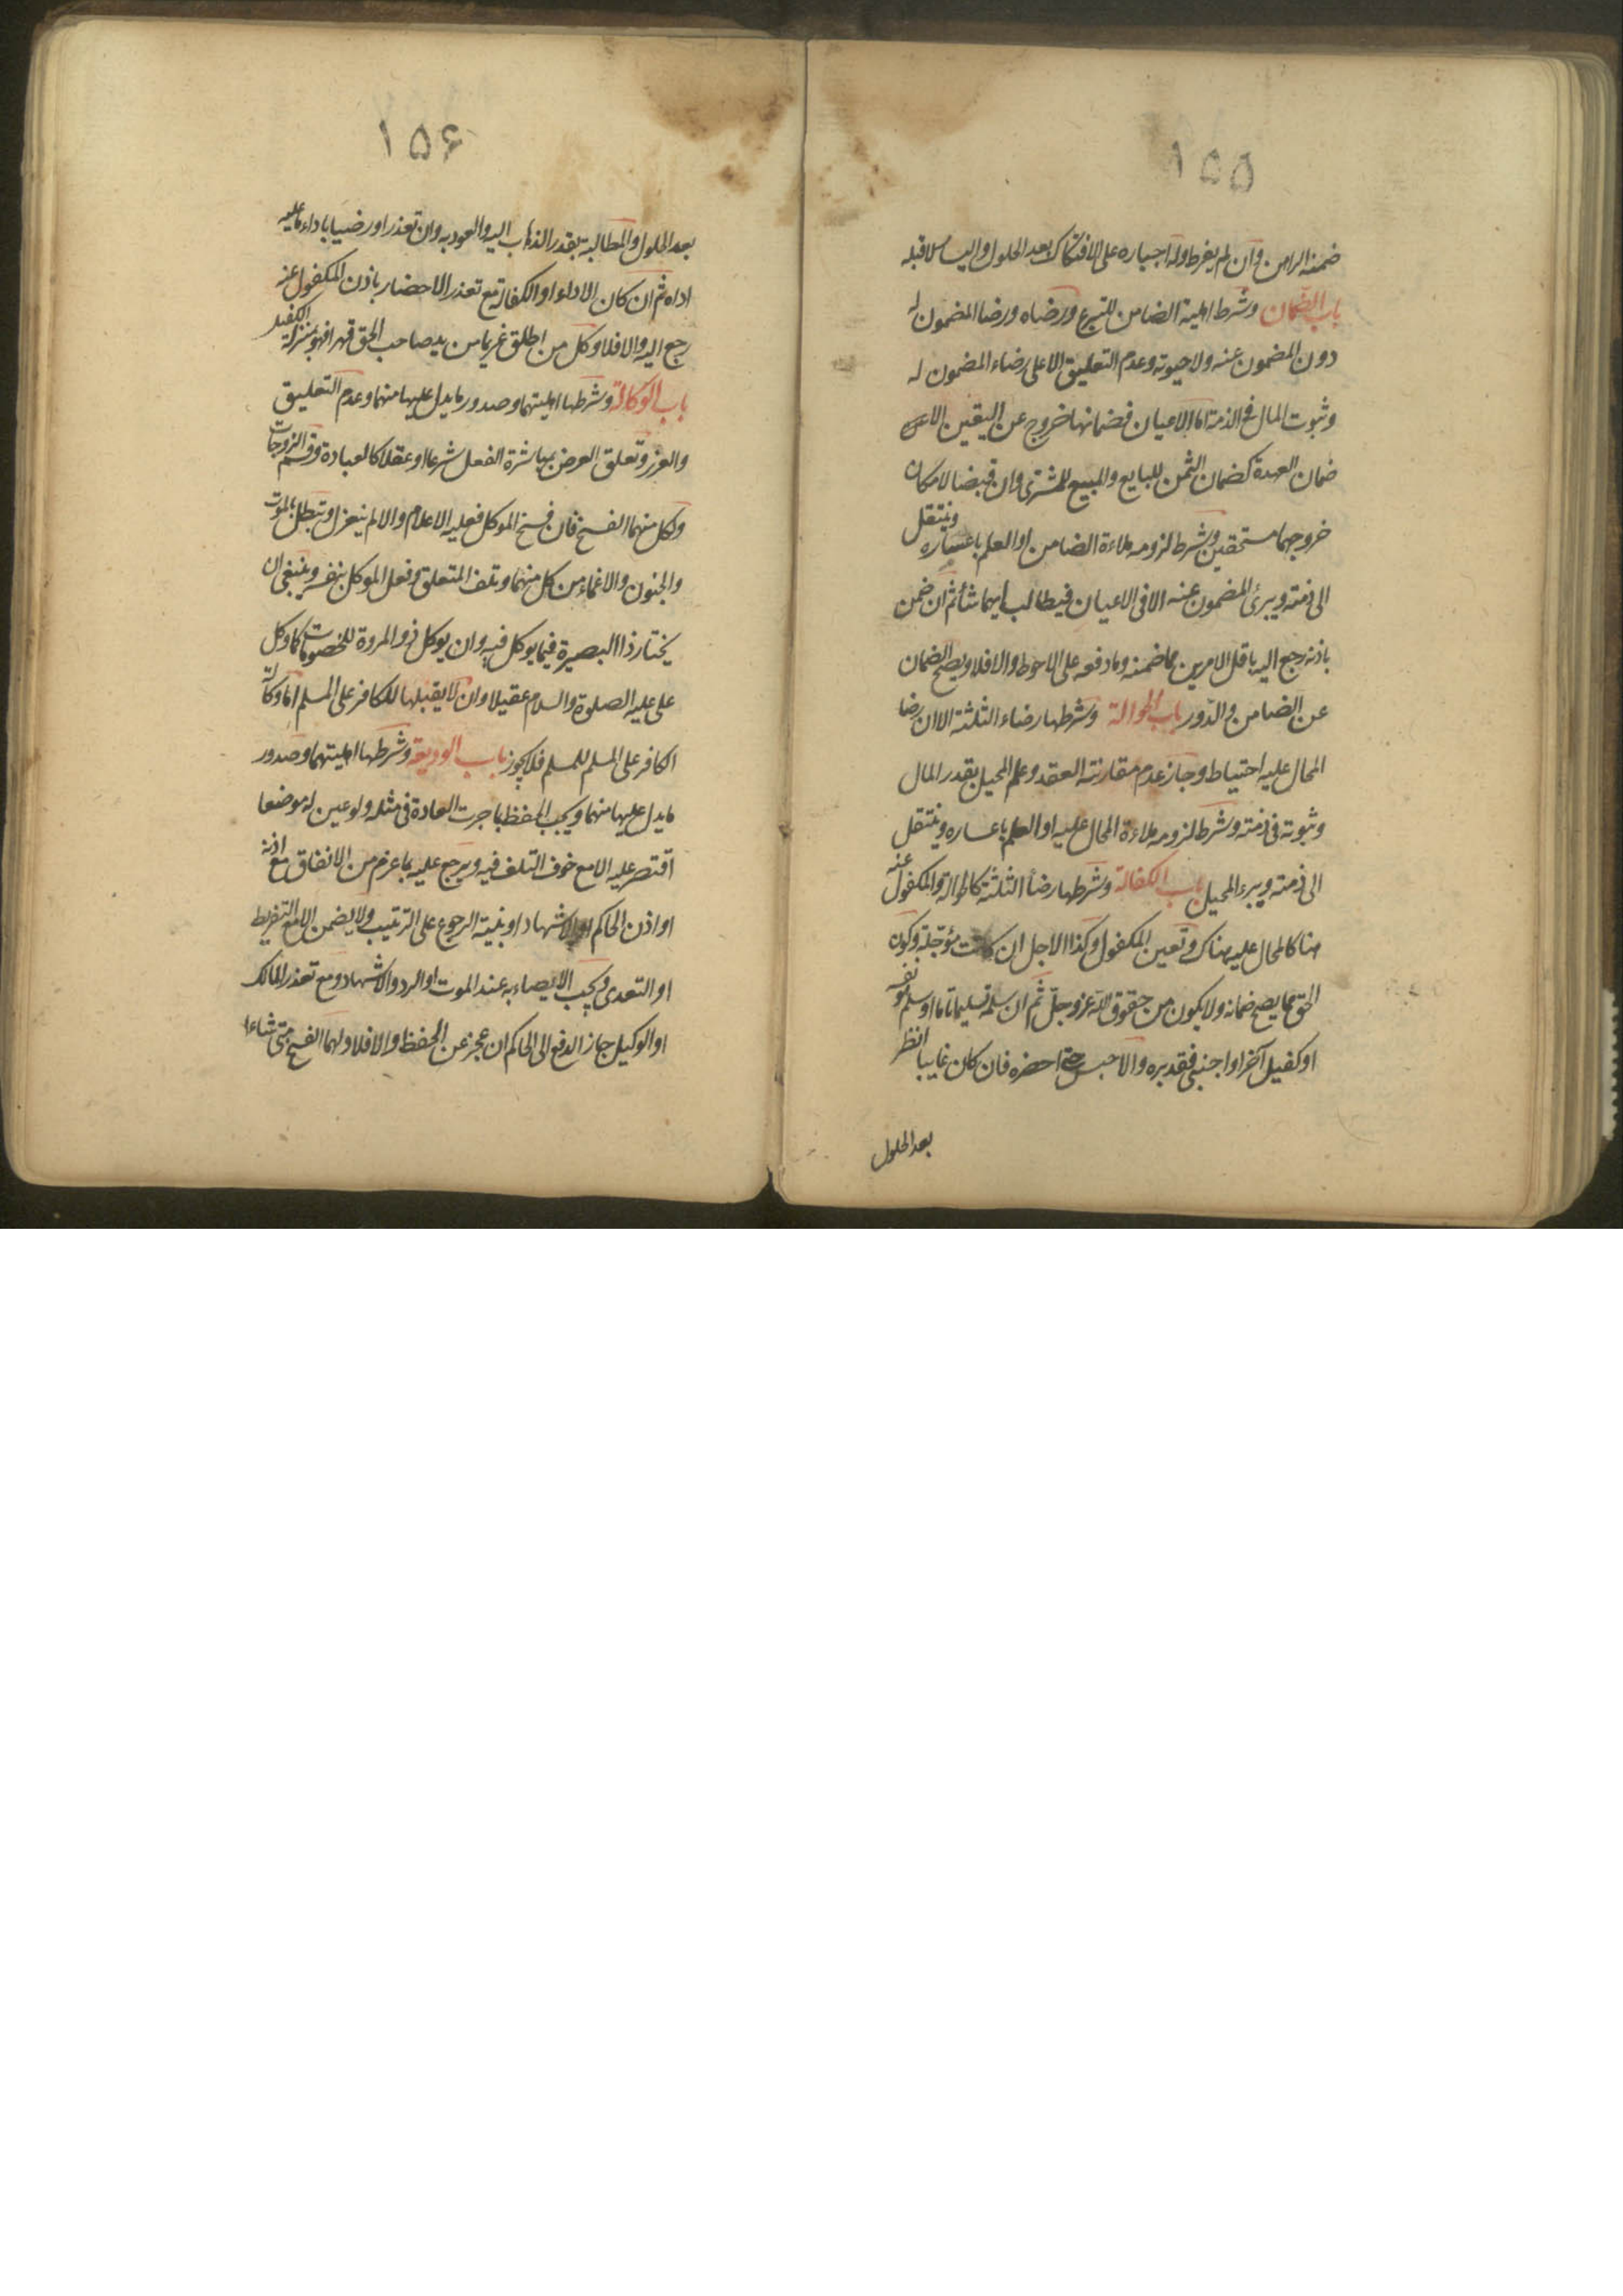 ١٥٥
ضمنه الراهن وان لم يفرط وله اجباره على الافتكاك بعد الحلول وليس له قبله
باب الضمان وشرط اهلية الضامن للتبرع ورضاه ورضا المضمون له
دون المضمون عنه ولا حيوته وعدم التعليق الا على رضاء المضمون له
وثبوت المال في الذمة اما الاعيان فضمانها خروج عن اليقين الا في
ضمان العهدة كضمان الثمن للبايع والمبيع للمشترى وان قبضا لامكان
خروجهما مستحقين وشرط لزومه ملاءة الضامن او العلم باعساره وينتقل
الى ذمته ويبرئ المضمون عنه الا فى الاعيان فيطالب ايهما شأ ثم ان ضمن
باذنه رجع اليه باقل الامرين مما ضمنه وما دفعه على الاحوط والا فلا ويصح الضمان
عن الضامن والدور باب الحوالة وشرطها رضاء الثلثة الا ان رضا
المحال عليه احتياط وجاز عدم مقارنته العقد وعلم المحيل بقدر المال
وثبوته فى ذمته وشرط لزومه ملاءة المحال عليه او العلم باعساره وينتقل
الى ذمته ويبرء المحيل باب الكفالة وشرطها رضأ الثلثة كالحوالة والمكفول عنه
هنا كالمحال عليه هناك وتعين المكفول وكذا الاجل ان كانت مؤجلة وكون
الحق مما يصح ضمانه ولا يكون من حقوق الله عز وجل ثم ان سلمه تسليما تاما او سلم هو نفسه
او كفيل آخر او اجنبى فقد برء والا حبس حتى احضره فان كان غايبا انظر
بعد الحلول
١٥۶
بعد الحلول والمطالبة بقدر الذهاب اليه والعود به وان تعذر او رضيا باداء ما عليه
اداه ثم ان كان الاداء او الكفالة مع تعذر الاحضار باذن المكفول عنه
رجع اليه والا فلا وكل من اطلق غريما من يد صاحب الحق قهرا فهو بمنزلة الكفيل
باب الوكالة وشرطها اهليتهما وصدور ما يدل عليها منهما وعدم التعليق
والغرر وتعلق الغرض بمباشرة الفعل شرعا او عقلا كالعبادة وقسم الزوجات
ولكل منهما الفسخ فان فسخ الموكل فعليه الاعلام والا لم ينعزل وتبطل بالموت
والجنون والاغماء من كل منهما وتلف المتعلق وفعل الموكل بنفسه وينبغى ان
يختار ذا البصيرة فيما يوكل فيه وان يوكل ذو المروة للخصومات كما وكل
على عليه الصلوة والسلام عقيلا وان لا يقبلها للكافر على المسلم اما وكالة
الكافر على المسلم للمسلم فلا يجوز باب الوديعة وشرطها اهليتهما وصدور
ما يدل عليها منهما ويجب الحفظ بما جرت العادة فى مثله ولو عين له موضعا
اقتصر عليه الا مع خوف التلف فيه ويرجع عليه بما غرم من الانفاق مع اذنه
او اذن الحاكم او الاشهاد او بنية الرجوع على الترتيب ولا يضمن الا مع التفريط
او التعدى ويجب الايصاء به عند الموت او الرد والاشهاد ومع تعذر المالك
او الوكيل جاز الدفع الى الحاكم ان عجز عن الحفظ والا فلا ولهما الفسخ متى شاءا